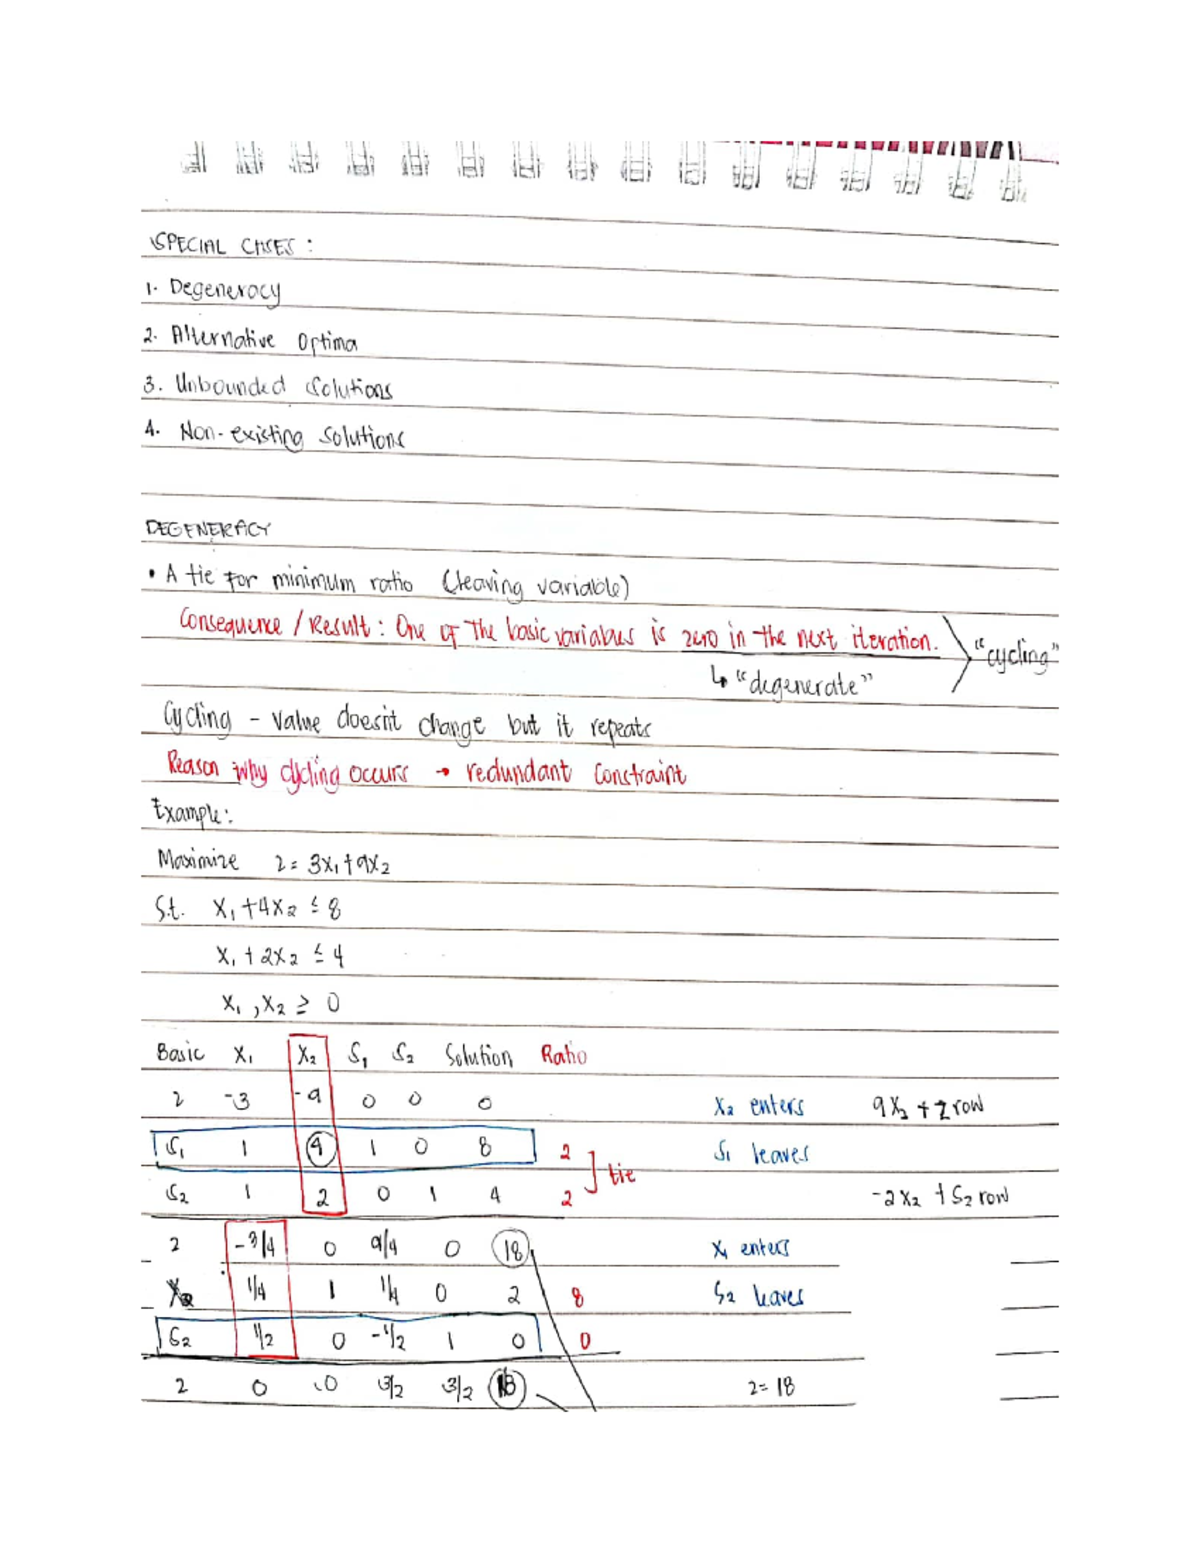 SPECIAL CASES :
1. Degeneracy
2. Alternative Optima
3. Unbounded Solutions
4. Non-existing Solutions
DEGENERACY
• A tie for minimum ratio (leaving variable)
Consequence / Result : One of the basic variables is zero in the next iteration.
"cycling"
↳ "degenerate"
Cycling - Value doesn't change but it repeats
Reason why cycling occurs → redundant constraint
Example:
Maximize z = 3x₁ + 9x₂
S.t. x₁ + 4x₂ ≤ 8
x₁ + 2x₂ ≤ 4
x₁ , x₂ ≥ 0
Basic x₁ x₂ S₁ S₂ Solution Ratio
z -3 -9 0 0 0 x₂ enters 9x₂ + z row
S₁ 1 4 1 0 8 2 S₁ leaves
tie
S₂ 1 2 0 1 4 2 -2x₂ + S₂ row
z -3/4 0 9/4 0 18 x₁ enters
x₂ 1/4 1 1/4 0 2 8 S₂ leaves
S₂ 1/2 0 -1/2 1 0 0
z 0 0 3/2 3/2 18 z = 18